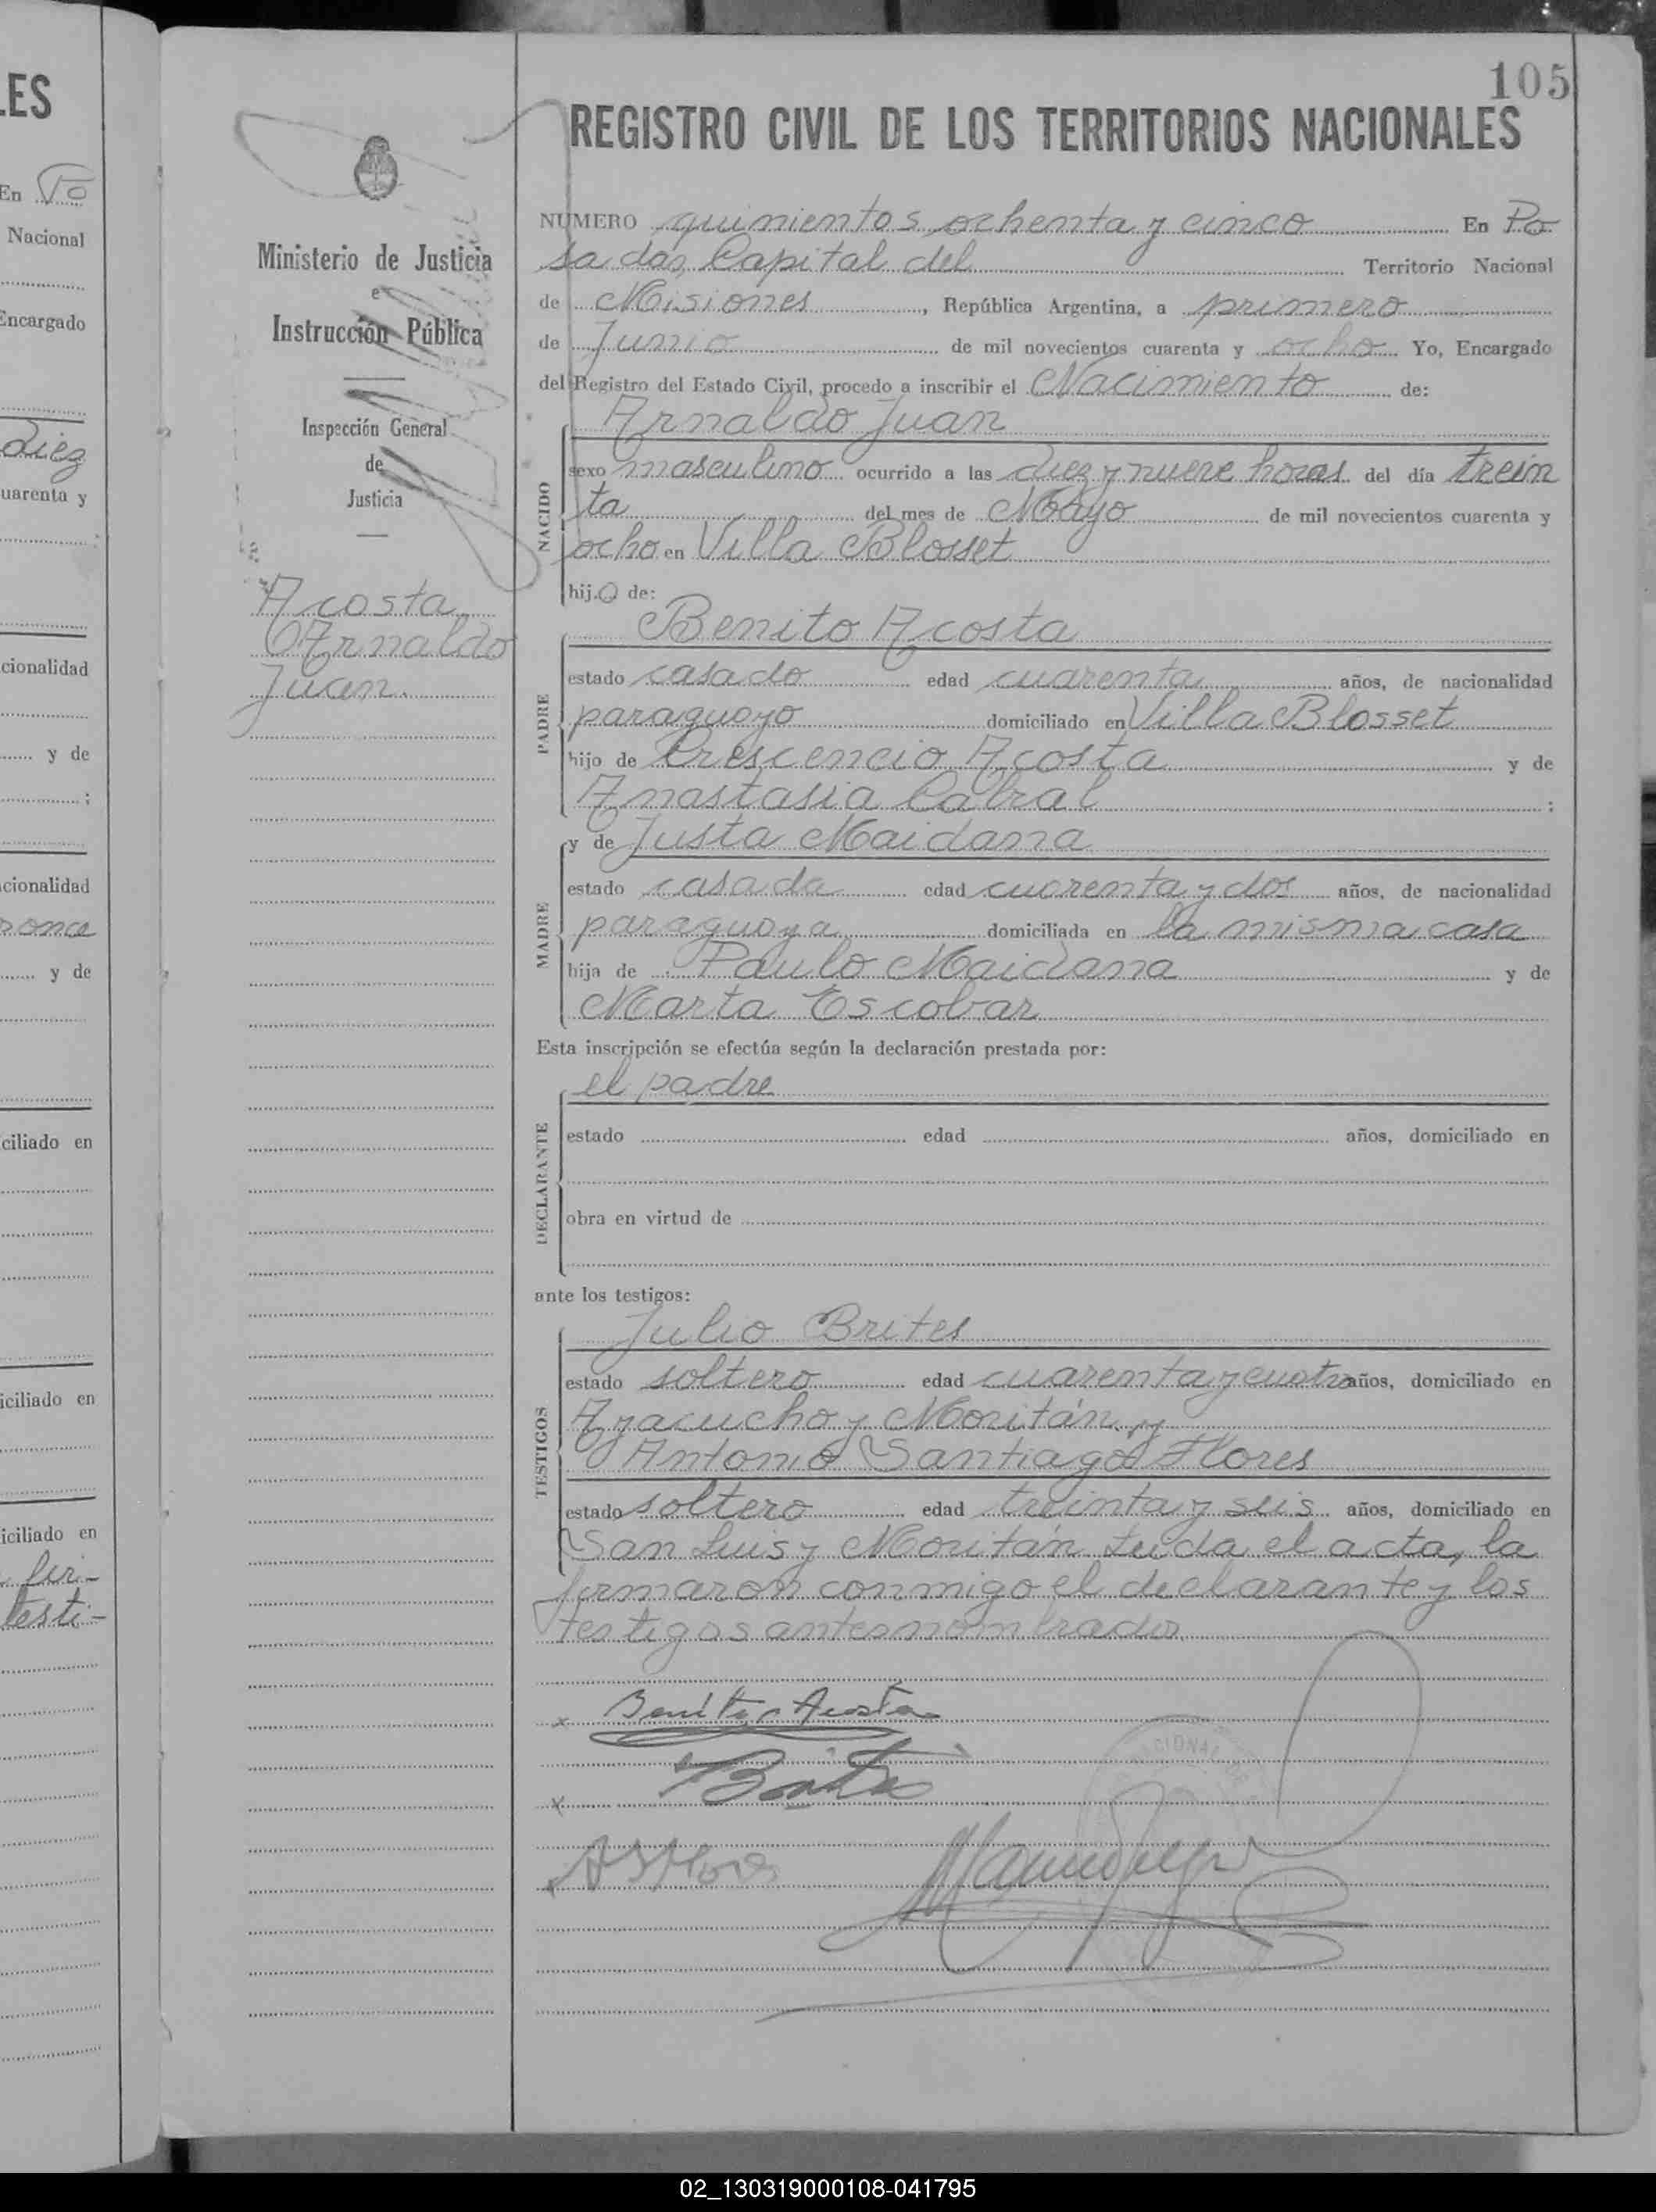 LES
En Po
Nacional
Encargado
diez
cuarenta y
nacionalidad
y de
;
nacionalidad
y de
domiciliado en
domiciliado en
domiciliado en
fir-
testi-
105
REGISTRO CIVIL DE LOS TERRITORIOS NACIONALES
Ministerio de Justicia
e
Instrucción Pública
Inspección General
de
Justicia
Acosta
Arnaldo
Juan.
NUMERO quinientos ochenta y cinco En Po
sadas, Capital del Territorio Nacional
de Misiones, República Argentina, a primero
de Junio de mil novecientos cuarenta y ocho Yo, Encargado
del Registro del Estado Civil, procedo a inscribir el Nacimiento de:
Arnaldo Juan
NACIDO
sexo masculino ocurrido a las diez y nueve horas del día trein
ta del mes de Mayo de mil novecientos cuarenta y
ocho en Villa Blosset
hijo de:
Benito Acosta
PADRE
estado casado edad cuarenta años, de nacionalidad
paraguayo domiciliado en Villa Blosset
hijo de Crescencio Acosta y de
Anastasia Cabral ;
y de Justa Maidana
MADRE
estado casada edad cuarenta y dos años, de nacionalidad
paraguaya domiciliada en la misma casa
hija de Paulo Maidana y de
Marta Escobar
Esta inscripción se efectúa según la declaración prestada por:
el padre
DECLARANTE
estado edad años, domiciliado en
obra en virtud de
ante los testigos:
Julio Brites
TESTIGOS
estado soltero edad cuarenta y cuatro años, domiciliado en
Ayacucho y Moritán y
Antonio Santiago Flores
estado soltero edad treinta y seis años, domiciliado en
San Luis y Moritán Leida el acta, la
firmaron conmigo el declarante y los
testigos antes nombrados
x Benito Acosta
x Brites
ASFlores
02_130319000108-041795